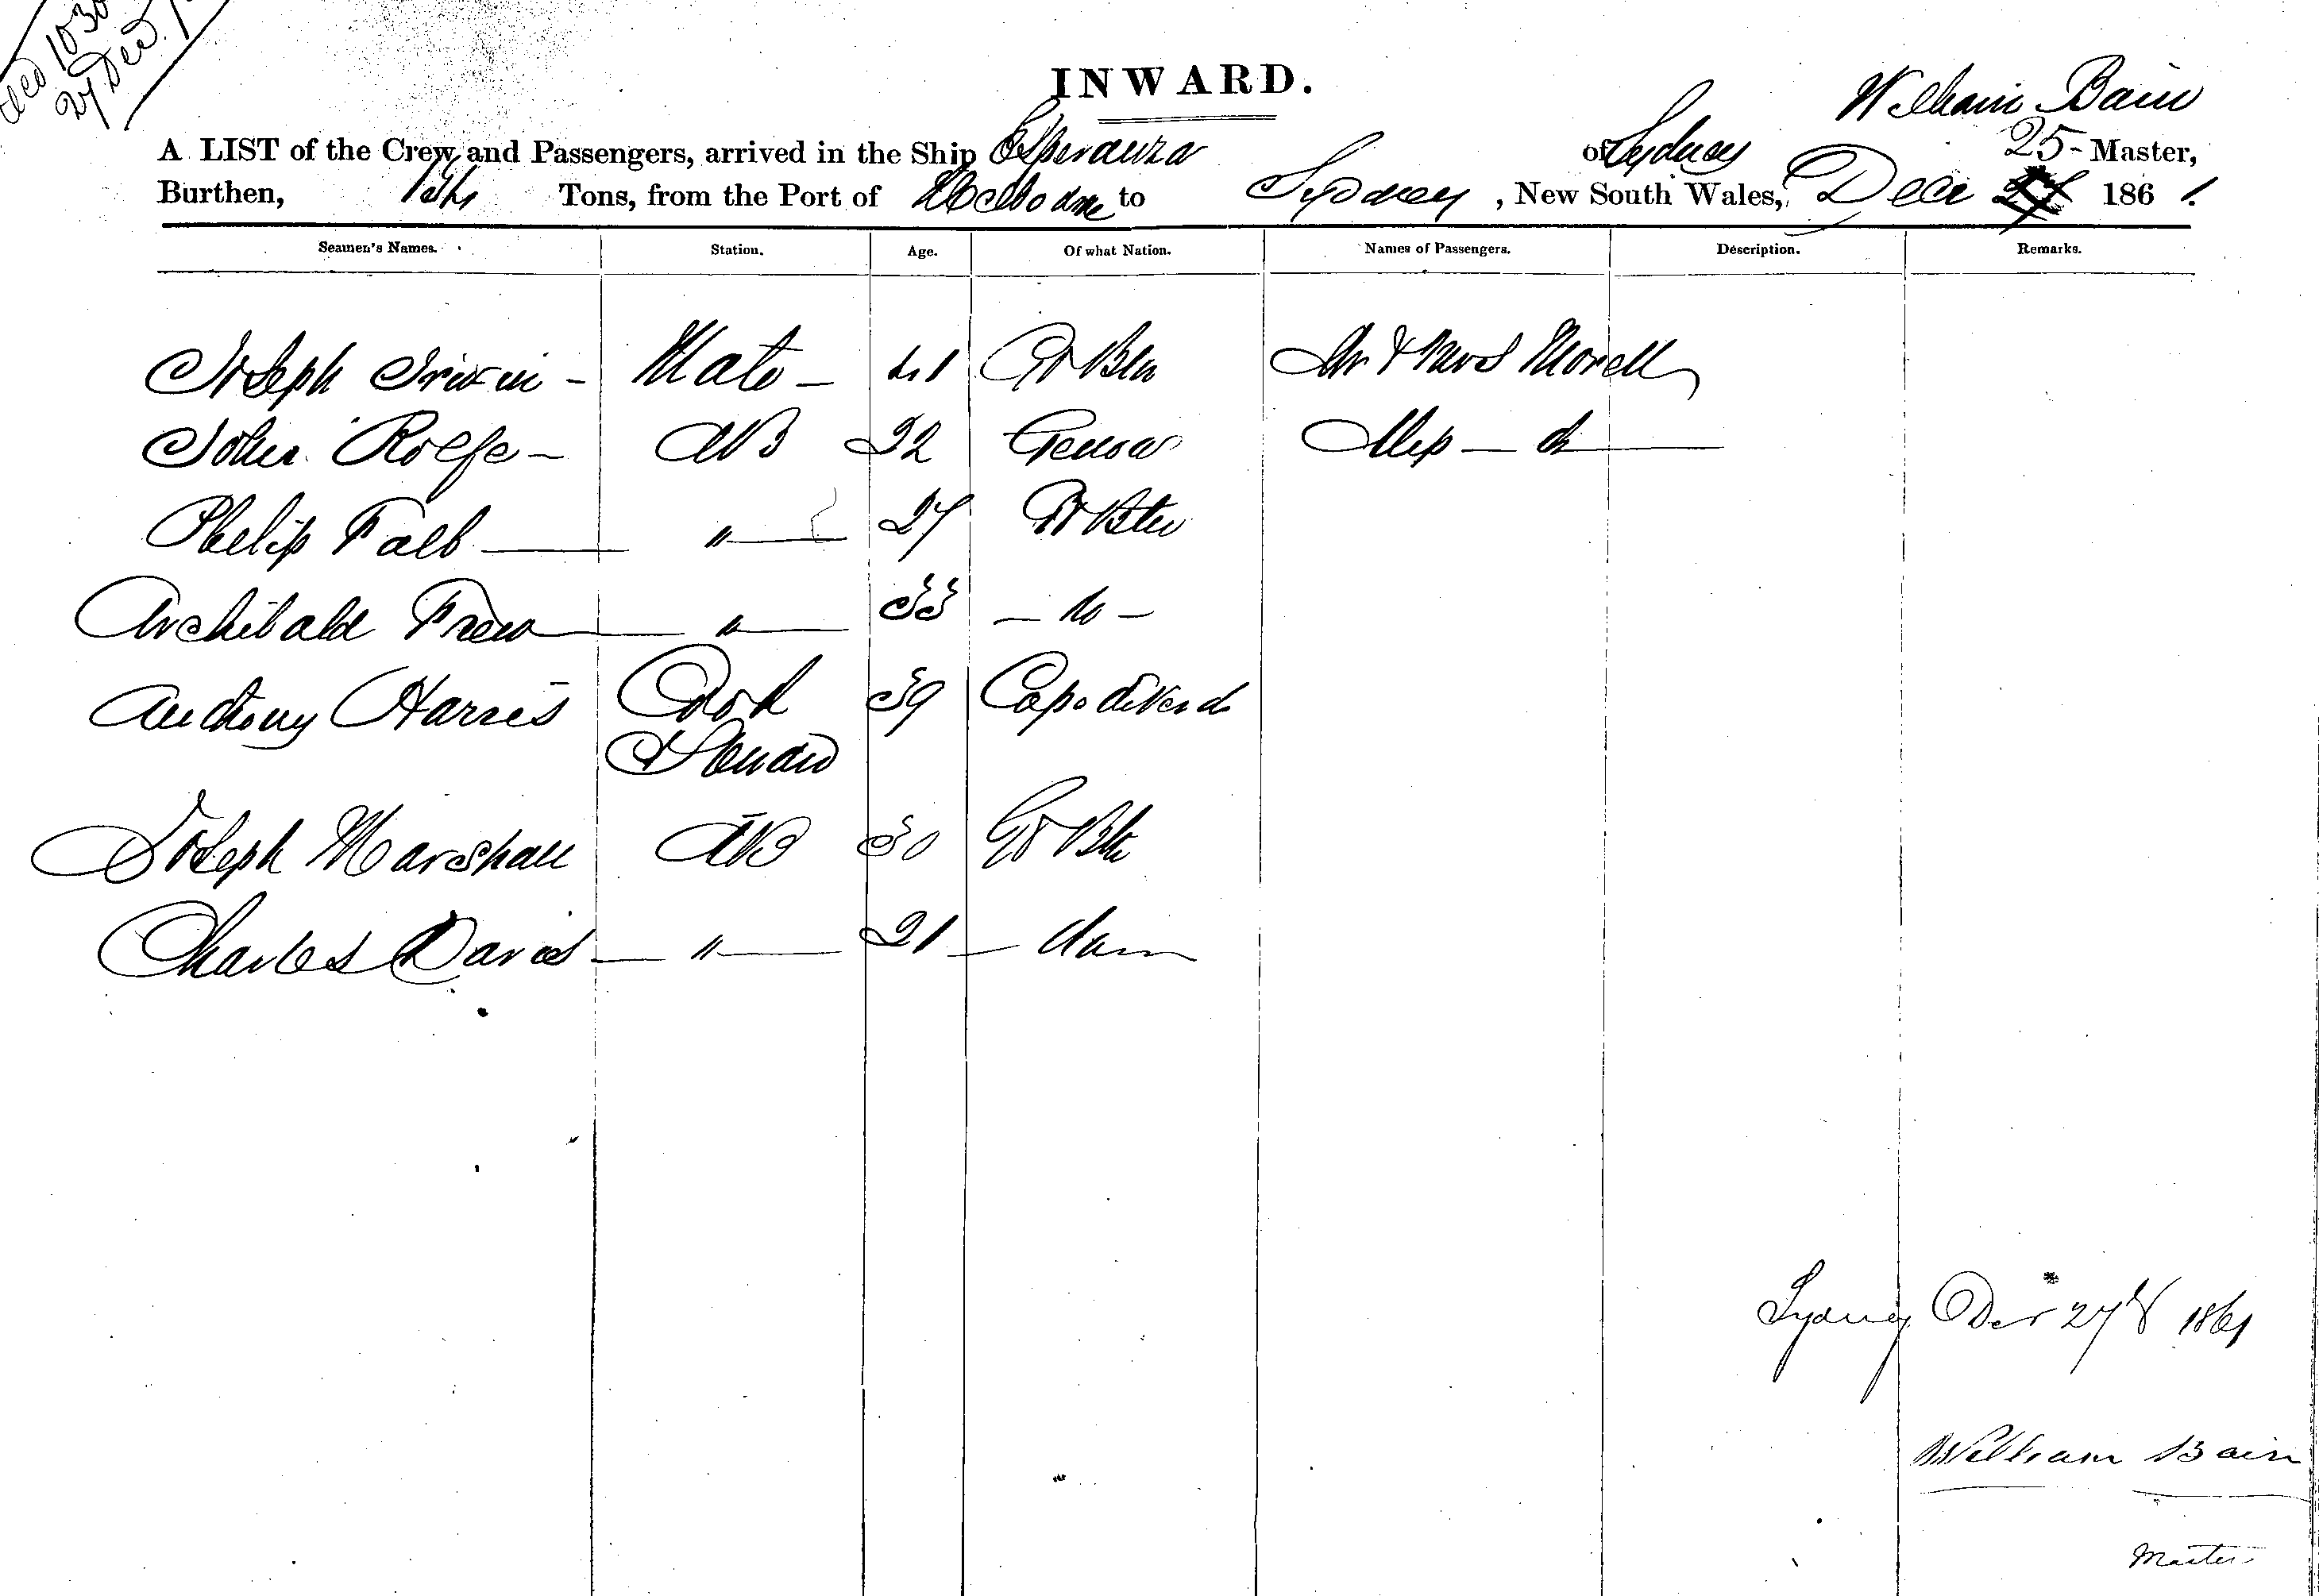 1030
27 Dec
INWARD.
William Bain
A LIST of the Crew and Passengers, arrived in the Ship Esperanza of Sydney 25 - Master,
Burthen, Tons, from the Port of Melbourne to Sydney, New South Wales, Decr 27 1861.
Seamen's Names. Station. Age. Of what Nation. Names of Passengers. Description. Remarks.
Joseph Irwin - Mate - 41 Gt Btn Mr & Mrs Morell
John Rolfe - AB 22 Genoa Miss - do
Philip Falb " 27 Gt Btn
Archibald Frew " 33 - do -
Anthony Harris Cook 39 Capo di Verd
Steward
Joseph Marshall AB 30 Gt Btn
Charles David " 21
Sydney Decr 27th 1861
William Bain
Master